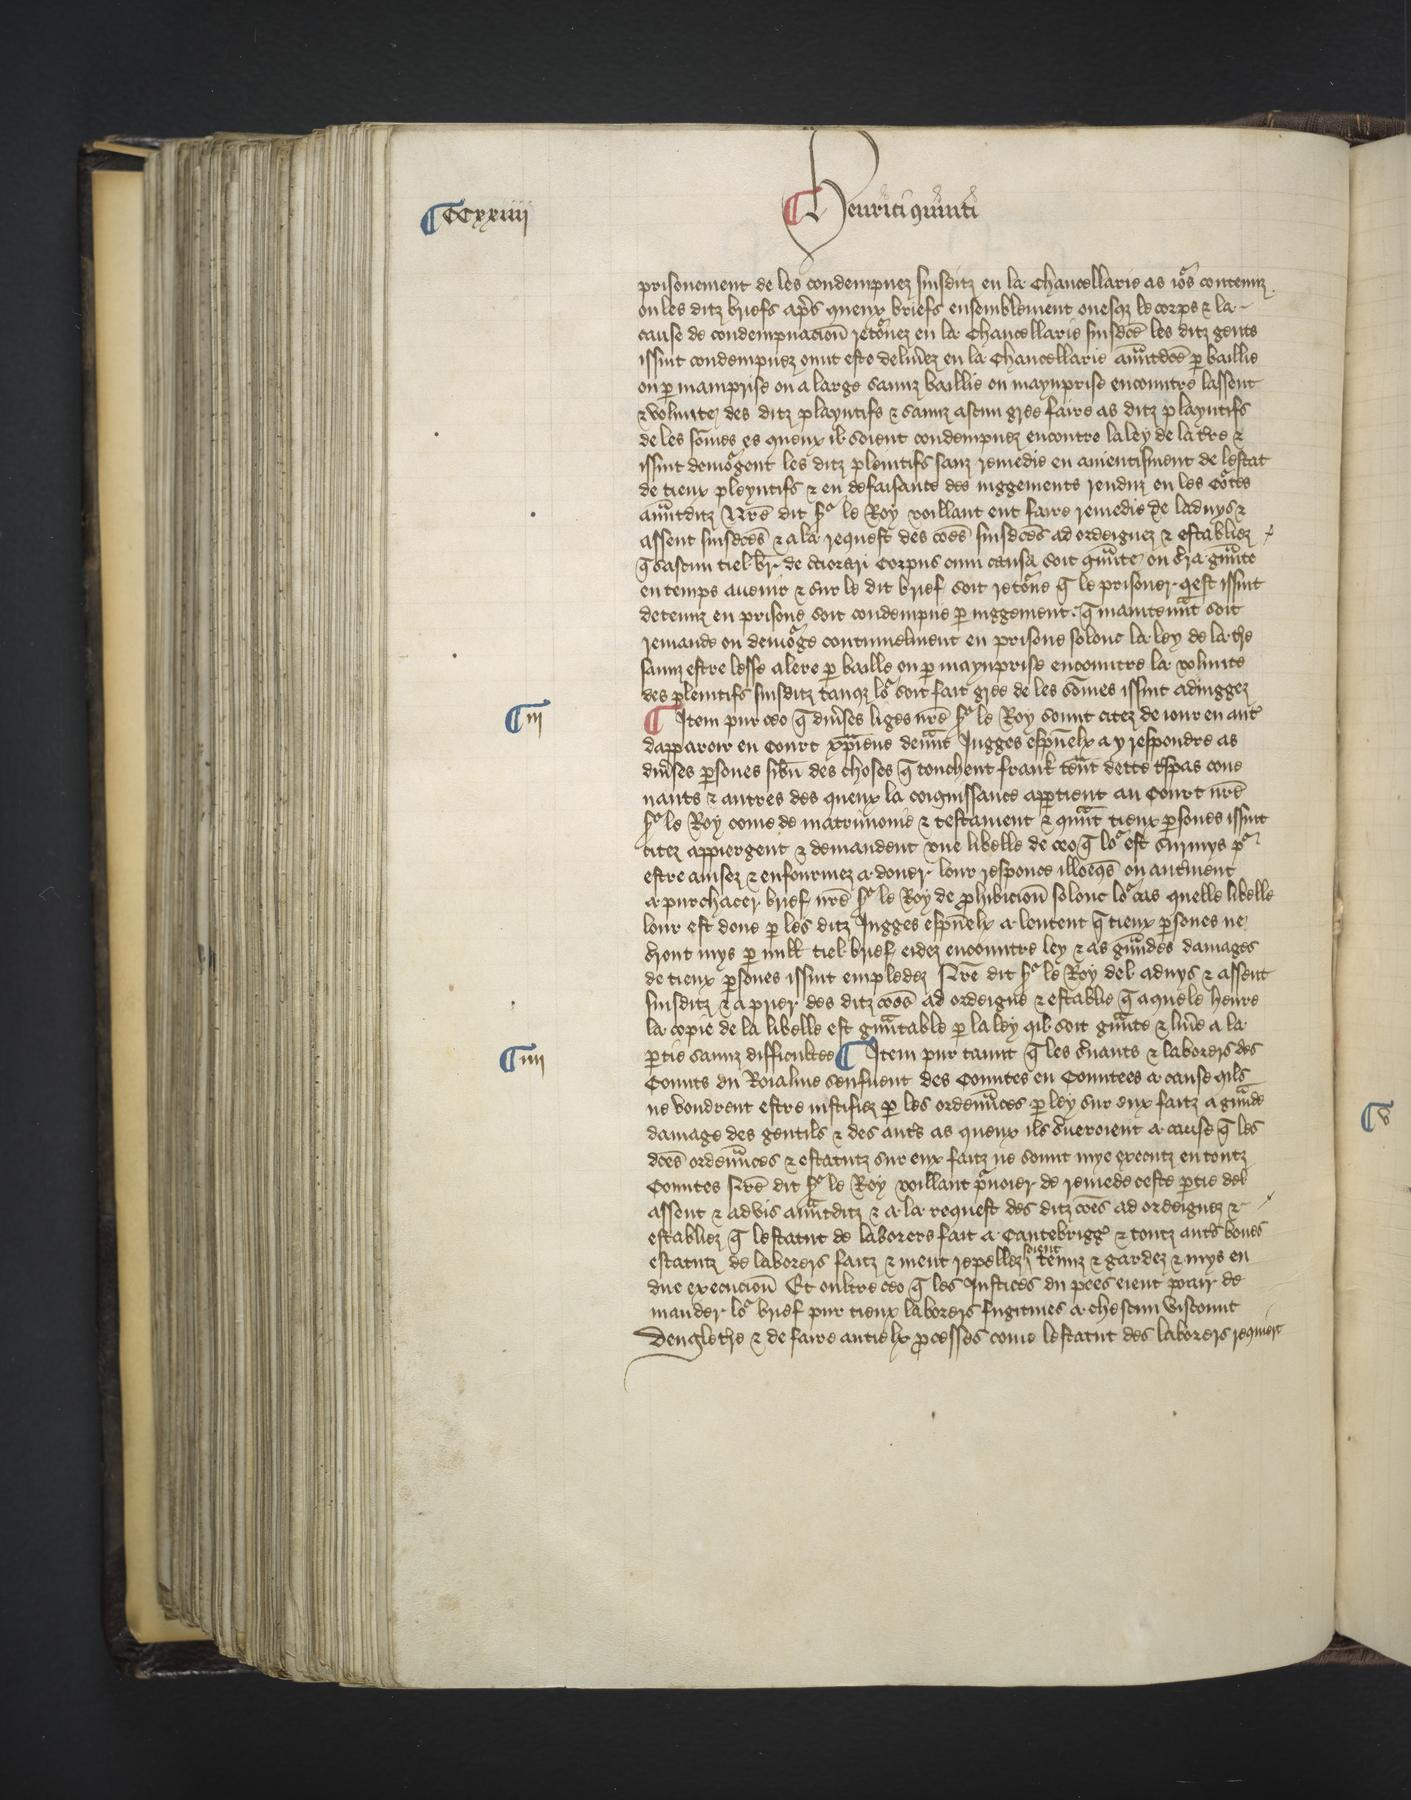 ¶CCxxiiii
¶Henrici quinti
prisonement de les condempnez suisditz en la Chancellarie as io͛s contenuz
ou les ditz briefs ap̄s queux briefs ensemblement ouesqȝ le corps ⁊ la
cause de condempnacioū reto͛nez en la Chancellarie suisdc̄e les ditz gents
issint condempnez ount este deliu͛ez en la Chancellarie auͣntdc̄e ꝑ baillie
ou ꝑ mainprise ou a large sanz baillie ou maynprise encountre lassent
⁊ volunte des ditz playntifs ⁊ sanz ascun gree faire as ditz playntifs
de les som̄es es queux ils soient condempnez encontre la ley de la t͛re ⁊
issint demo͛gent les ditz pleintifs sanz remedie en anientisment de lestat
de tieux pleyntifs ⁊ en defaisance des iuggements renduz en les Co͛tes
auͣntditz Nr̄e dit s͛r le Roy voillant ent faire remedie de laduys ⁊
assent suisdc̄es ⁊ a la request des coēs suisdc̄es ad ordeignez ⁊ establiez
q̄ si ascun tiel br̄ de c̄tiorari Corpus cum causa soit gͣunte ou s͛ra gͣunte
en temps auenir ⁊ sur le dit brief soit reto͛ne q̄ le prisoner qest issint
detenuz en prisone soit condempne ꝑ iuggement q̄ maintenͣnt soit
remande ou demo͛ge continuelment en prisone solonc la ley de la t͛re
sanz estre lesse alere ꝑ baille ou ꝑ maynprise encountre la volunte
des pleintifs suisditz tanqȝ lo͛ soit fait gree de les som̄es issint adiuggez
¶iij
¶Item pur ceo q̄ diu͛ses liges nr̄e s͛r le Roy sount citez de iour en aut͛
dapparoir en Court xp̄iene deuͣnt Jugges esp̄uelx a y respondre as
diu͛ses ꝑsones sibn̄ des choses q̄ touchent frank ten̄t dette t͛spas coue
nants ⁊ autres des queux la coignissance apꝑtient au Court nr̄e
s͛r le Roy come de matrimonie ⁊ testament ⁊ quͣnt tieux ꝑsones issint
citez appiergent ⁊ demandent vne libelle de ceo q̄ lo͛ est surmys p͛
estre auisez ⁊ enfourmez a doner lour responce illoeq̄s ou aut͛ment
a purchacer brief nr̄e s͛r le Roy de ꝓhibicioū solonc lo͛ cas quelle libelle
lour est done ꝑ les ditz Jugges esp̄uelx a lentent q̄ tieux ꝑsones ne
s͛ront mys ꝑ null tiel brief eidez encountre ley ⁊ as gͣundes damages
de tieux ꝑsones issint empledez Nr̄e dit s͛r le Roy del aduys ⁊ assent
suisditz ⁊ a prier des ditz coēs ad ordeigne ⁊ establie q̄ aquele heure
la copie de la libelle est gͣuntable ꝑ la ley qils soit gͣunte ⁊ liu͛e a la
¶iiij
ꝑtie sanz difficultee ¶Item pur taunt q̄ les s͛uants ⁊ laborers des
Counts du Roialme senfuent des Countes en Countees a cause qils
ne vondrent estre iustifiez ꝑ les ordenͣnces ꝑ ley sur eux faitz a gͣunde
damage des gentils ⁊ des aut͛s as queux ils s͛ueroient a cause q̄ les
dc̄es ordenͣnces ⁊ estatutz sur eux faitz ne sount mye executz en toutz
Countes Nr̄e dit s͛r le Roy voillant p͛uoier de remede ceste ꝑtie del
assent ⁊ advis auͣntditz ⁊ a la request des ditz coēs ad ordeignez ⁊
establiez q̄ lestatut de laborers fait a Cantebrigg͛ ⁊ toutz aut͛s bones
estatutz de laborers faitz ⁊ nient repellez soient tenuz ⁊ gardez ⁊ mys en
due execucioū Et oultre ceo q̄ les Justices du pees eient poair de
mander lo͛ brief pur tieux laborers fugitiues a chescun Viscount
Dengletre ⁊ de faire autielx ꝓcesses come lestatut des laborers requiert
¶v